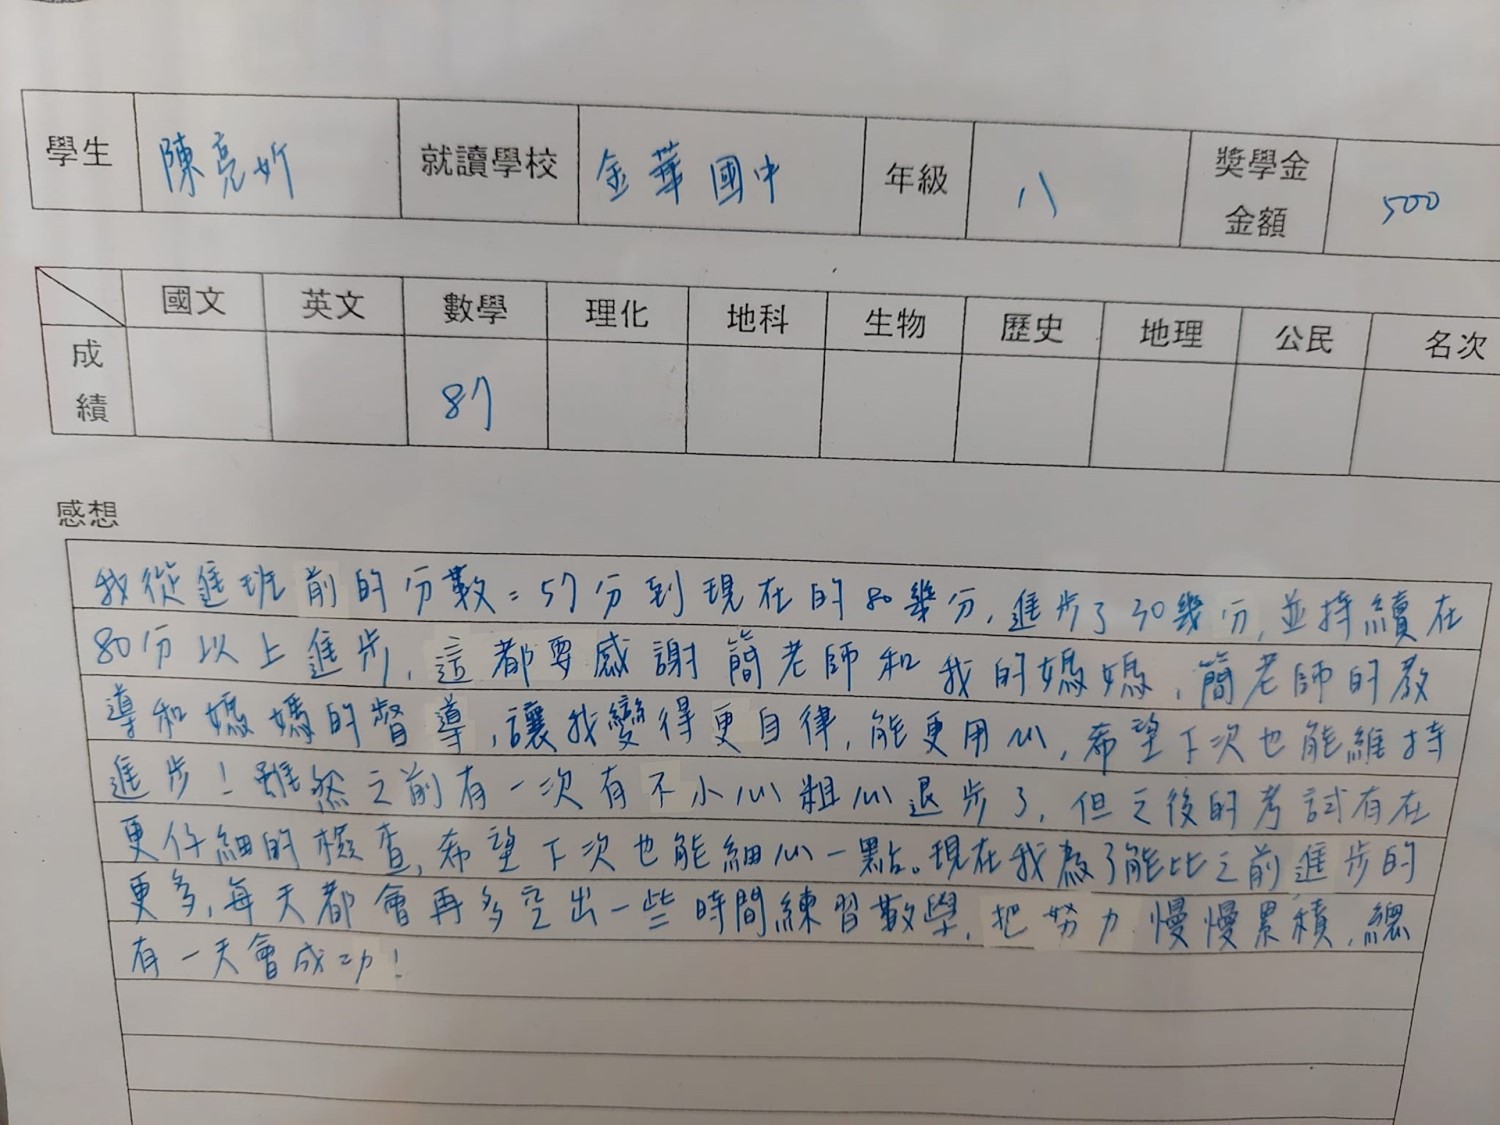 學生 陳亮妡 就讀學校 金華國中 年級 八 獎學金金額 500
國文 英文 數學 理化 地科 生物 歷史 地理 公民 名次
成績 87
感想
我從進班前的分數：57分到現在的80幾分，進步了30幾分，並持續在
80分以上進步，這都要感謝簡老師和我的媽媽，簡老師的教
導和媽媽的督導，讓我變得更自律，能更用心，希望下次也能維持
進步！雖然之前有一次有不小心粗心退步了，但之後的考試有在
更仔細的檢查，希望下次也能細心一點。現在我為了能比之前進步的
更多，每天都會再多空出一些時間練習數學，把努力慢慢累積，總
有一天會成功！